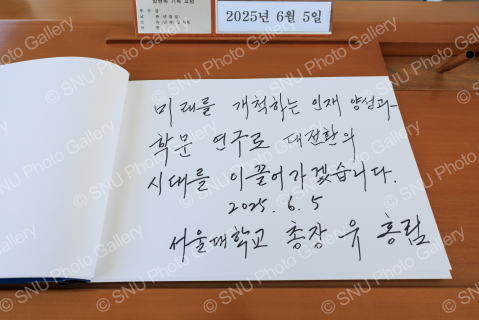 2025년 6월 5일
미래를 개척하는 인재 양성과
학문 연구로 대전환의
시대를 이끌어가겠습니다.
2025. 6. 5
서울대학교 총장 유홍림
© SNU Photo Gallery